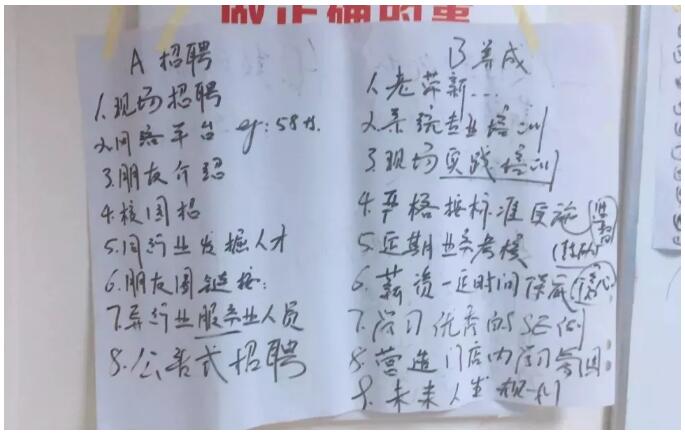 做正确的事
A 招聘
1.现场招聘
2.网络平台 eg:58
3.朋友介绍
4.校园招
5.同行业发掘人才
6.朋友圈链接:
7.异行业服务业人员
8.公告式招聘
B 养成
1.老带新...
2.系统专业培训
3.现场实践培训
4.严格按标准实施
5.定期业务考核
6.薪资一定时间保底
7.学习优秀的SE
8.营造门店内学习氛围:
9.未来人生规划